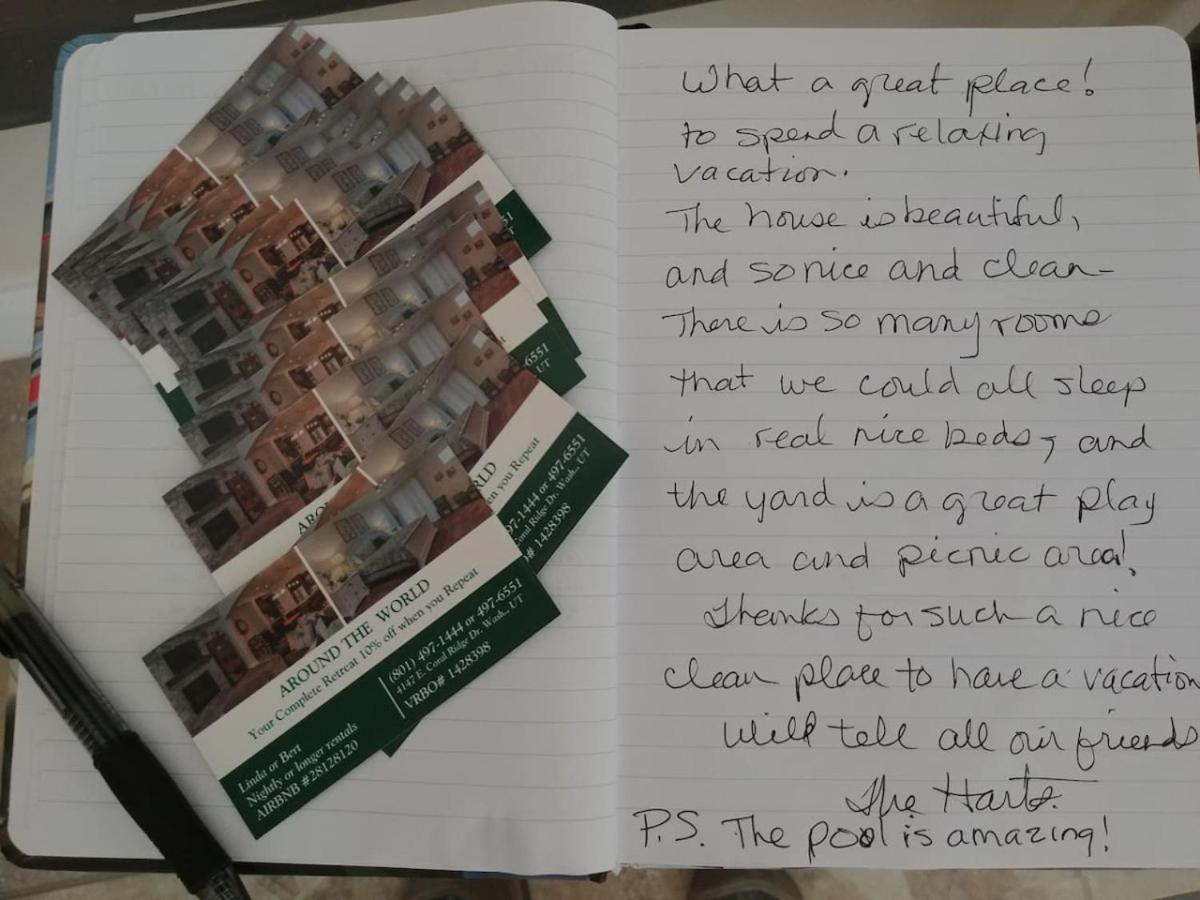 AROUND THE WORLD
Your Complete Retreat 10% off when you Repeat
Linda or Bert
Nightly or longer rentals
AIRBNB #28128120
(801) 497-1444 or 497-6551
4147 E. Coral Ridge Dr. Wash., UT
VRBO# 1428398
ARO
RLD
en you Repeat
97-1444 or 497-6551
Coral Ridge Dr. Wash., UT
# 1428398
6551
UT
51
T
What a great place!
to spend a relaxing
vacation.
The house is beautiful,
and so nice and clean-
There is so many rooms
that we could all sleep
in real nice beds, and
the yard is a great play
area and picnic area!
Thanks for such a nice
clean place to have a vacation
Will tell all our friends
The Harts.
P.S. The pool is amazing!